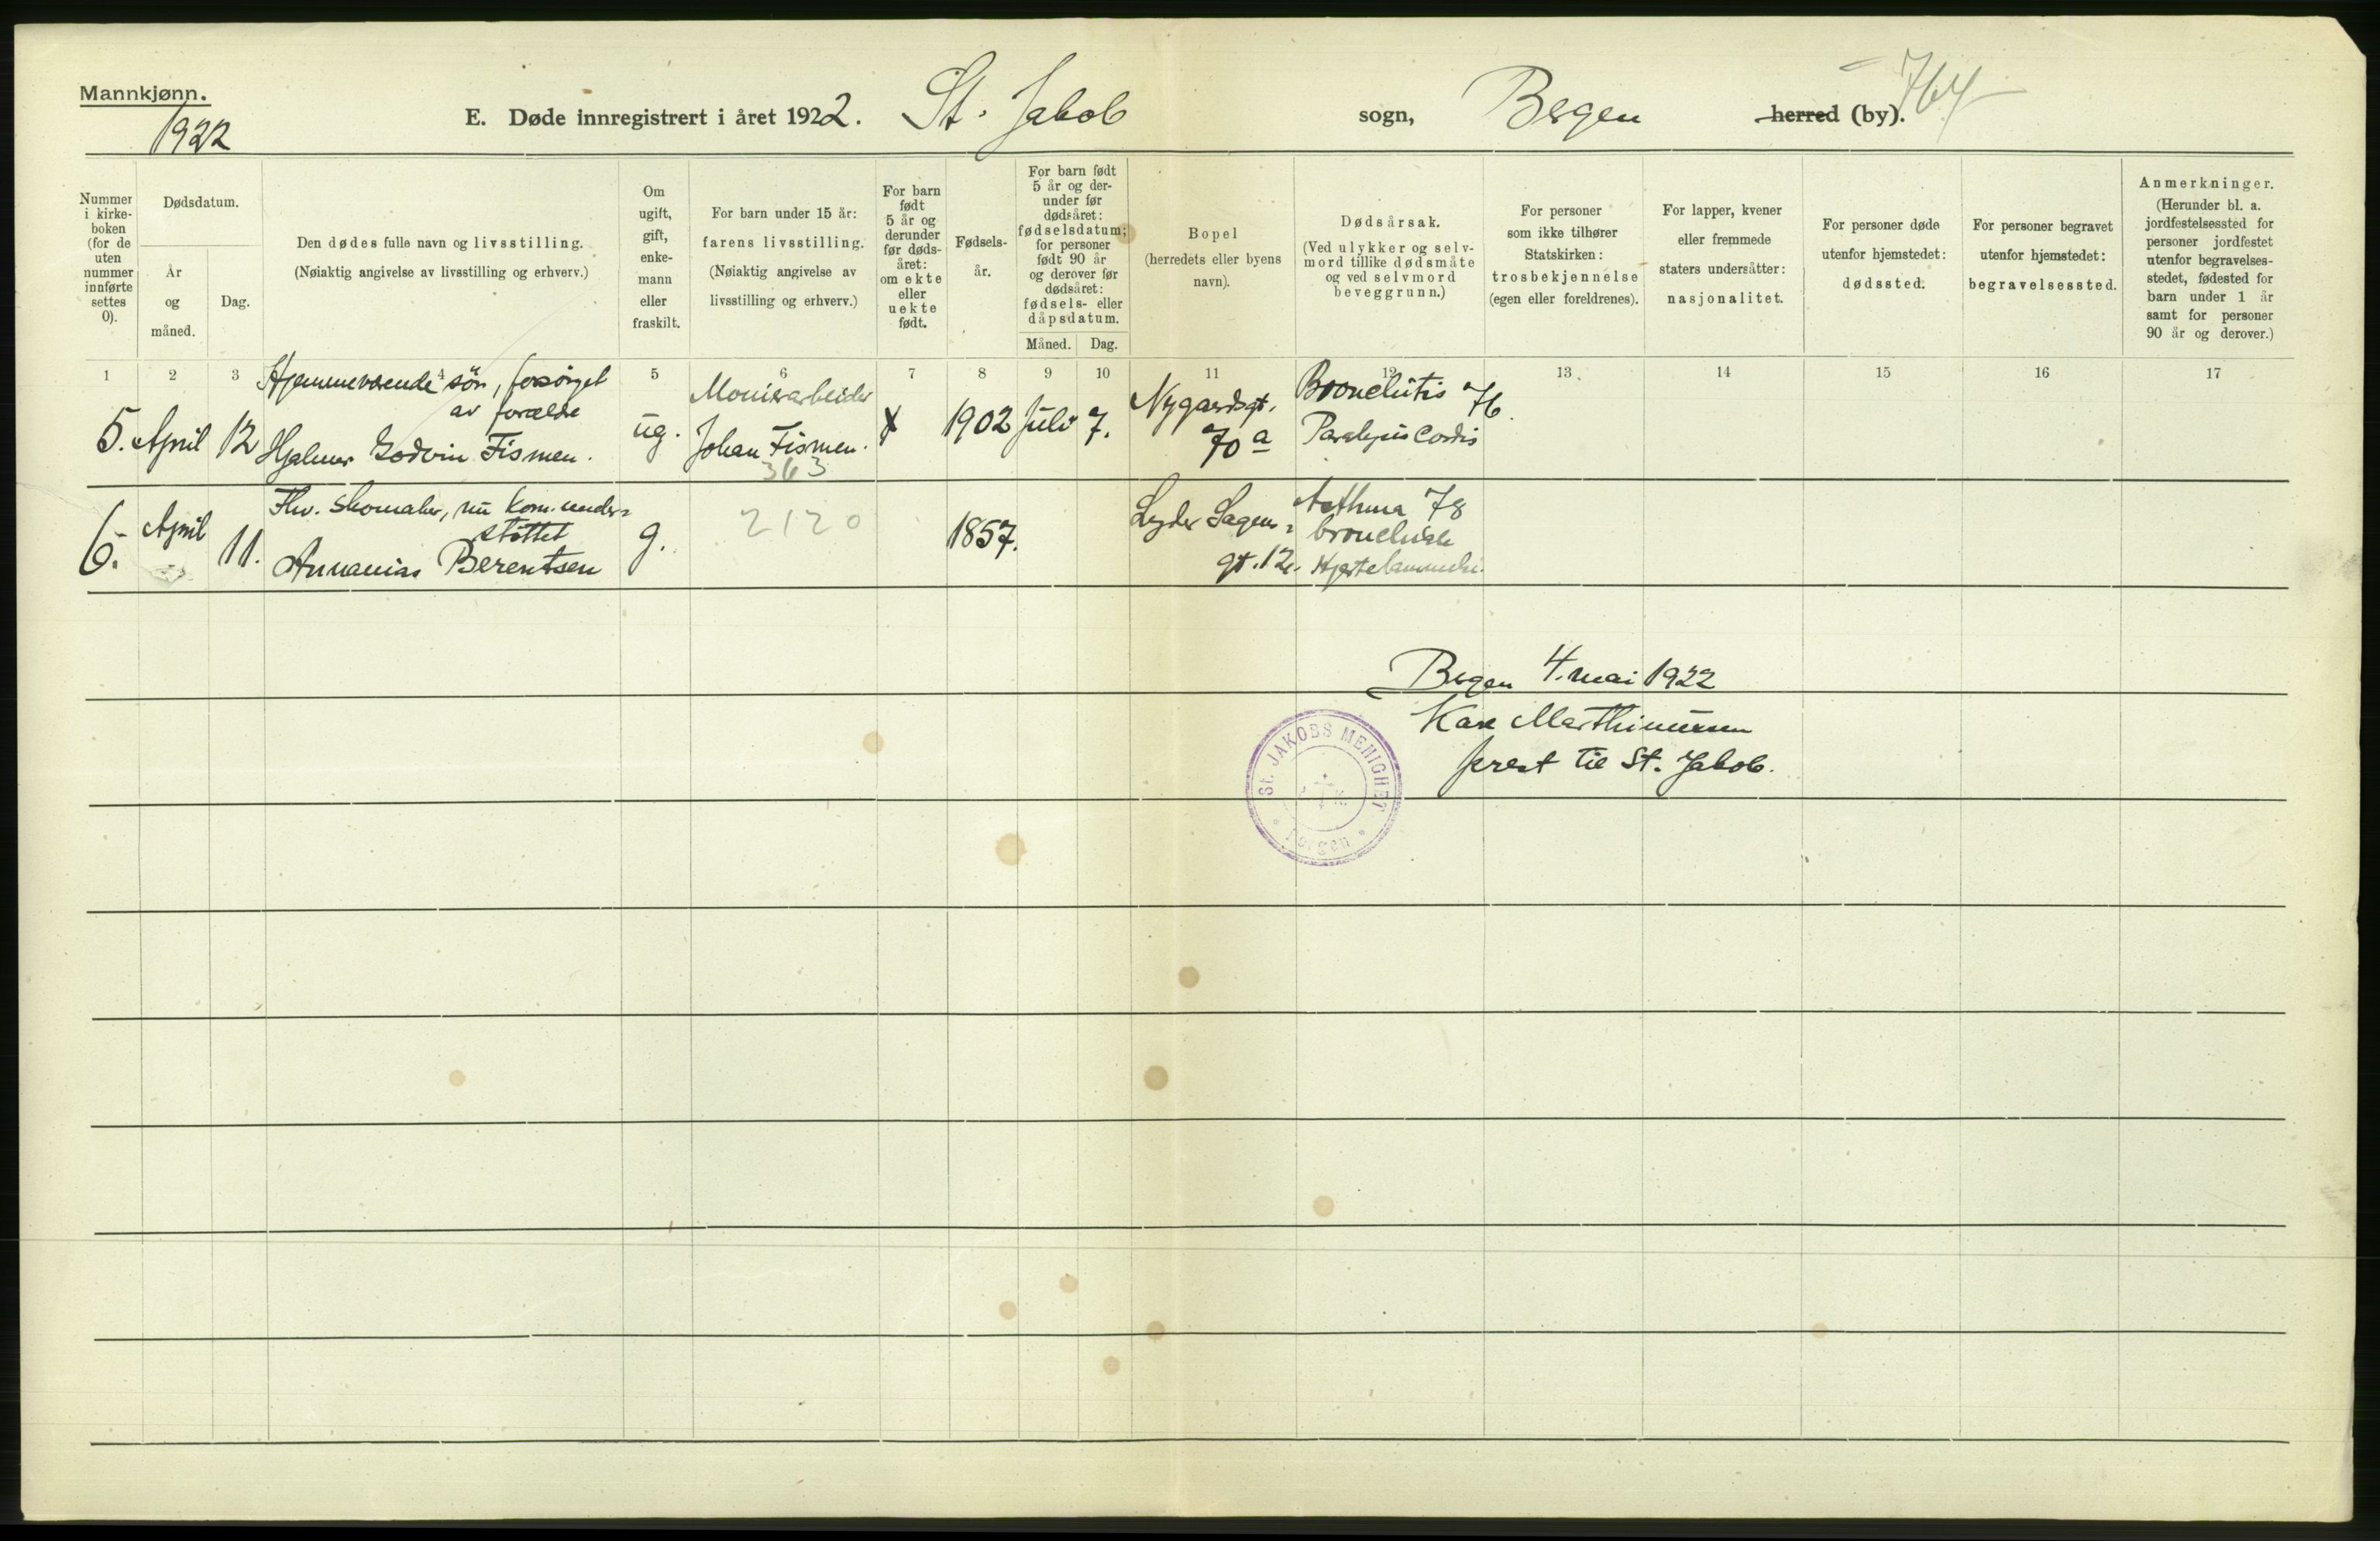 Mannkjønn.
1922
E. Døde innregistrert i året 1922. St. Jakob sogn, Bergen herred (by). 764
Nummer i kirke-boken (for de uten nummer innførte settes 0).
Dødsdatum.
År og måned.
Dag.
Den dødes fulle navn og livsstilling.
(Nøiaktig angivelse av livsstilling og erhverv.)
Om ugift, gift, enke-mann eller fraskilt.
For barn under 15 år:
farens livsstilling.
(Nøiaktig angivelse av
livsstilling og erhverv.)
For barn født 5 år og derunder før døds-året: om ekte eller uekte født.
Fødsels-
år.
For barn født
5 år og der-
under før
dødsåret:
fødselsdatum;
for personer
født 90 år
og derover før
dødsåret:
fødsels- eller
dåpsdatum.
Måned. Dag.
Bopel
(herredets eller byens
navn).
Dødsårsak.
(Ved ulykker og selv-
mord tillike dødsmåte
og ved selvmord
beveggrunn.)
For personer
som ikke tilhører
Statskirken:
trosbekjennelse
(egen eller foreldrenes).
For lapper, kvener
eller fremmede
staters undersåtter:
nasjonalitet.
For personer døde
utenfor hjemstedet:
dødssted.
For personer begravet
utenfor hjemstedet:
begravelsessted.
Anmerkninger.
(Herunder bl. a.
jordfestelsessted for
personer jordfestet
utenfor begravelses-
stedet, fødested for
barn under 1 år
samt for personer
90 år og derover.)
1 2 3 4 5 6 7 8 9 10 11 12 13. 14 15 16 17
Hjemmeværende søn, forsørget
av forældre
5. April 12 Hjalmar Godvin Fismen.
ug.
Monierarbeider
Johan Fismen.
363
X
1902 Juli 7.
Nygaardsgt.
70 a
Bronchitis 76.
Paralysis Cordis
Fhv. skomaker, nu kom. under=
støttet
6. April 11. Annanias Berentsen
g.
2120
1857.
Lyder Sagens=
gt. 12.
Asthma 78
bronchiale
Hjertelammelse.
Bergen 4. mai 1922
Kaare Marthinussen
prest til St. Jakob.
St. JAKOBS MENIGHET
Bergen